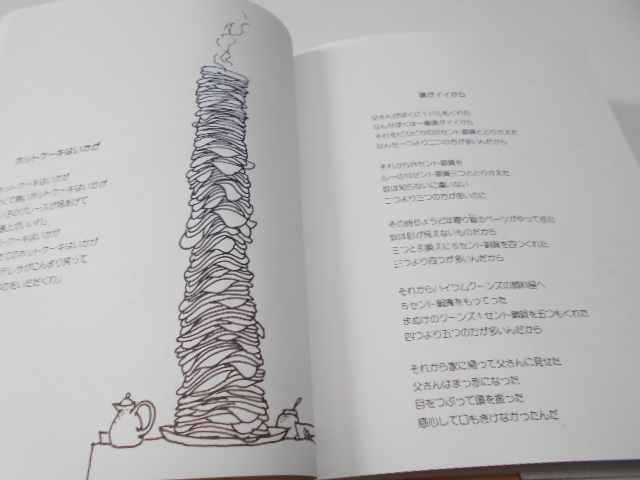 ホットケーキはいかが
ホットケーキはいかが
くて熱いホットケーキはいかが
い子のグレースが見あげて
番上がいいわ」
ットケーキはいかが
てのホットケーキはいかが
テレサがにんまり笑って
頭がイイから
父さんがぼくに1ドルもくれた
なんせぼくは一番頭がイイから
それをピカピカの25セント銀貨ととりかえた
なんせ一つより二つの方が多いんだから
それから25セント銀貨を
ルーの10セント銀貨三つととりかえた
奴は知らないに違いない
二つより三つの方が多いのに
その時ちょうど年寄り盲のベーツがやってきた
奴は目が見えないものだから
三つと引換えに5セント銅貨を四つくれた
三つより四つが多いんだから
それからハイラム・クーンズの飼料屋へ
5セント銅貨をもってった
まぬけのクーンズ1セント銅貨を五つもくれた
四つより五つの方が多いんだから
それから家に帰って父さんに見せた
父さんはまっ赤になった
目をつぶって頭を振った
感心して口もきけなかったんだ